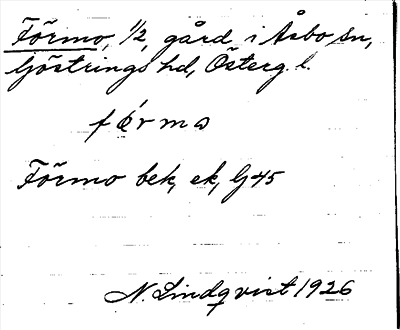 Förmo, 1/2, gård i Åsbo sn,
Göstrings hd, Österg. l.
førma
Förmo bek, ek, G45
N. Lindqvist 1926